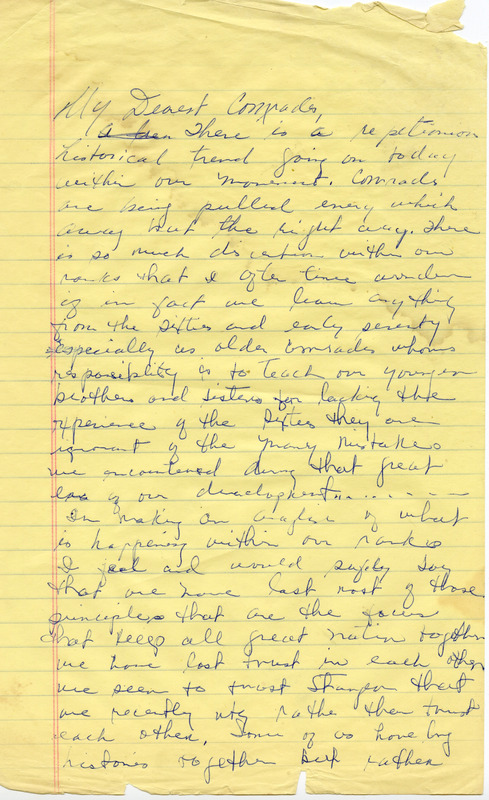 My Dearest Comrades,
There is a repetition
historical trend going on today
within our movement. Comrads
are being pulled every which
away but the right away. There
is so much discation within our
ranks that I often time wonder
if in fact we learn anything
from the sixties and early seventy
especially us older comrades whoms
responsibility is to teach our younger
brothers and sisters for lacking thee
experience of the sixties they are
ignorant of the many mistakes
we encountered during that great
era of our development.........
In making an of what
is happening within our ranks
I feel and would safely say
that we have lost most of those
principles that are the focus
that keep all great nation together
we have lost trust in each other
we seem to trust that
we recently rathe then trust
each other. Some of us have long
histories together but rather